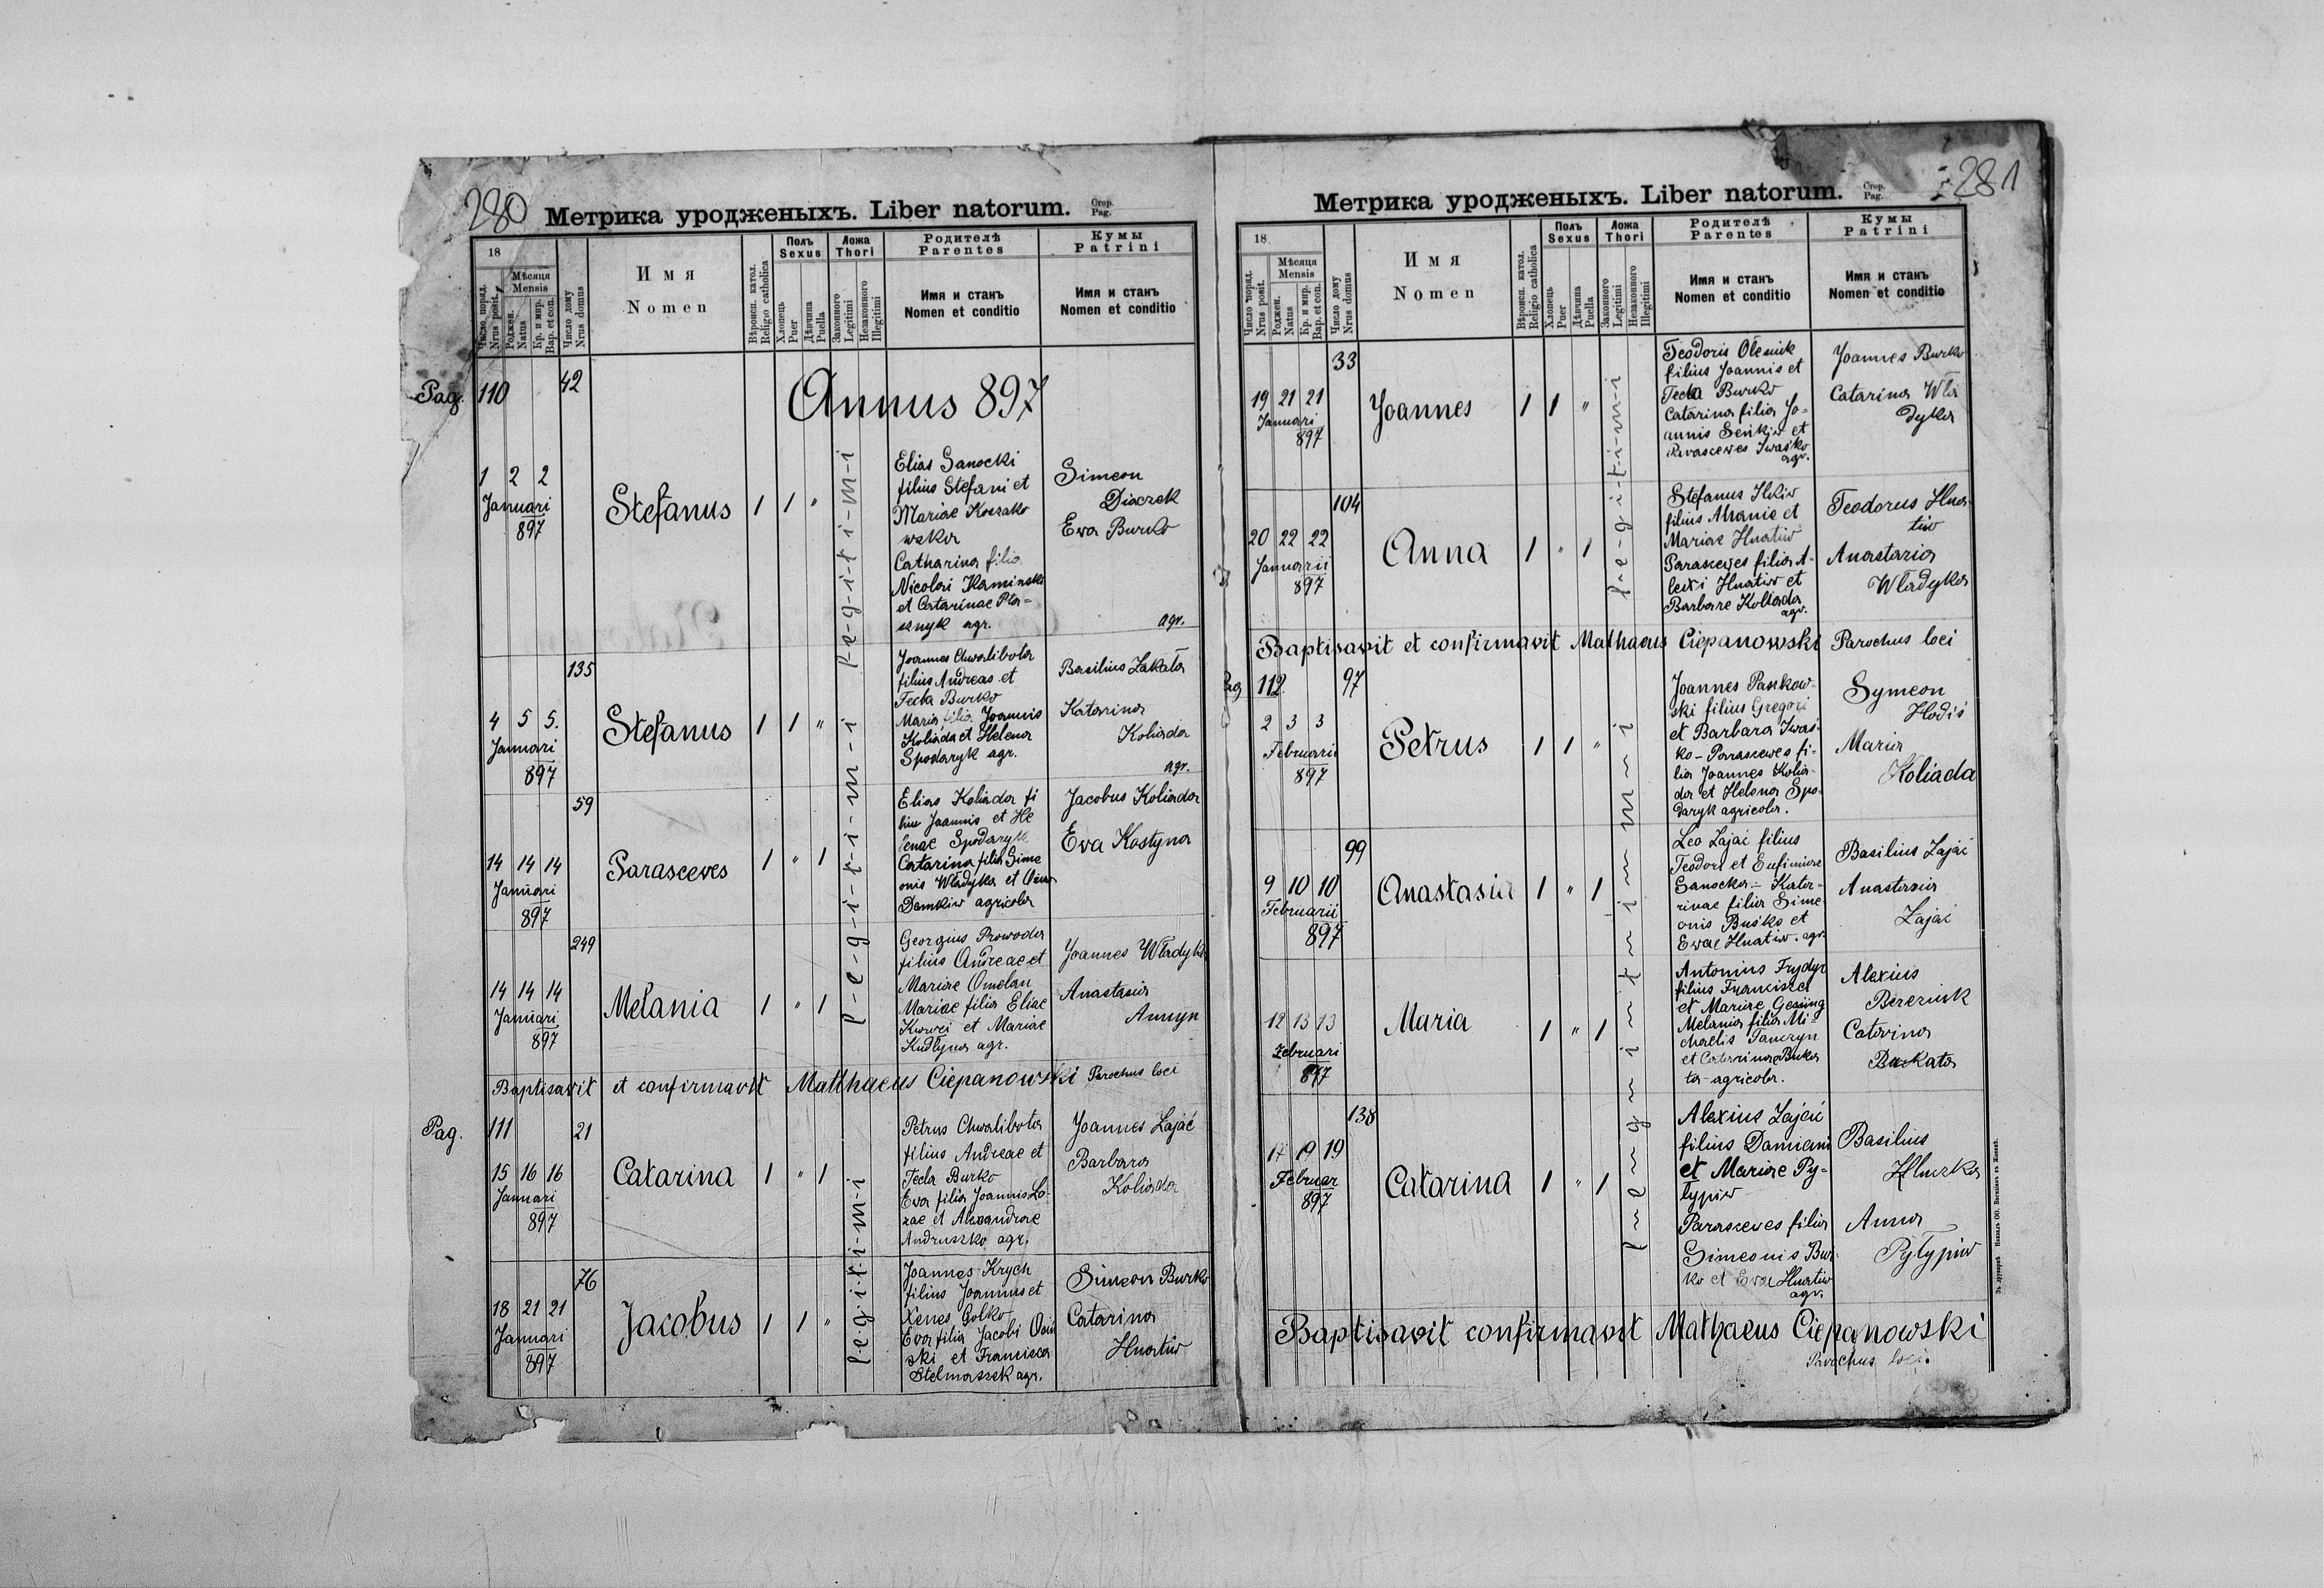 280
Метрика уродженыхъ. Liber natorum.
Стор.
Pag.
18
Число поряд.
Nrus posit.
Мѣсяця
Mensis
Роджен.
Natus
Кр. и мир.
Bap. et con.
Число дому
Nrus domus
Имя
Nomen
Вѣроисп. катол.
Religio catholica
Полъ
Sexus
Хлопець
Puer
Дѣвчина
Puella
Ложа
Thori
Законного
Legitimi
Незаконного
Illegitimi
Родителѣ
Parentes
Имя и станъ
Nomen et conditio
Кумы
Patrini
Имя и станъ
Nomen et conditio
Pag. 110 42
Annus 897
1 2 2
Januari
897
Stefanus 1 1 "
l-e-g-i-t-i-m-i
Elias Sanocki
filius Stefani et
Mariae Kozako
wska
Catharina filia
Nicolai Kaminski
et Catarinae Pta-
sznyk agr.
Simeon
Diaczek
Ewa Burko
agr.
135
4 5 5.
Januari
897
Stefanus 1 1 "
l-e-g-i-t-i-m-i
Joannes Chwalibota
filius Andreas et
Tecla Burko
Maria filia Joannis
Koliada et Helena
Spodaryk agr.
Basilius Zakała
Katarina
Koliada
agr.
59
14 14 14
Januari
897
Parascewes 1 " 1
Elias Koliada fi
lius Joannis et He
lenae Spodaryk
Catarina filia Sime
onis Władyka et Anna
Damkiw agricola
Jacobus Koliada
Ewa Kostyna
249
14 14 14
Januari
897
Melania 1 " 1
Georgius Prowoda
filius Andreae et
Mariae Omelan
Mariae filia Eliae
et Mariae
Kudłyna agr.
Joannes Władyka
Anastasia
Annyn
Baptisavit et confirmavit Matthaeus Ciepanowski Parochus loci
Pag. 111 21
15 16 16
Januari
897
Catarina 1 " 1
l-e-g-i-t-i-m-i
Petrus Chwalibota
filius Andreae et
Tecla Burko
Ewa filia Joannis Lo-
zae et Alexandrae
Andruszko agr.
Joannes Zajać
Barbara
Koliada
76
18 21 21
Januari
897
Jacobus 1 1 "
Joannes Krych
filius Joannis et
Xenes Golko
Ewa filia Jacobi
ski et Francisca
Stelmaszek agr.
Simeon Burko
Catarina
Hnatiw
281
Метрика уродженыхъ. Liber natorum.
Стор.
Pag.
18
Число поряд.
Nrus posit.
Мѣсяця
Mensis
Роджен.
Natus
Кр. и мир.
Bap. et con.
Число дому
Nrus domus
Имя
Nomen
Вѣроисп. катол.
Religio catholica
Полъ
Sexus
Хлопець
Puer
Дѣвчина
Puella
Ложа
Thori
Законного
Legitimi
Незаконного
Illegitimi
Родителѣ
Parentes
Имя и станъ
Nomen et conditio
Кумы
Patrini
Имя и станъ
Nomen et conditio
33
19 21 21
Januari
897
Joannes 1 1 "
l-e-g-i-t-i-m-i
Teodoris Olesnik
filius Joannis et
Tecla Burko
Catarina filia Jo-
annis Seńkiw et
Parascewes Iwaśko
agr.
Joannes Burko
Catarina Wła
dyka
104
20 22 22
Januarii
897
Anna 1 " 1
Stefanus Ilkiw
filius et
Mariae Hnatiw
Parascewes filia A-
lexi Hnatiw et
Barbare Koliada
agr.
Teodorus Hna
tiw
Anastazia
Władyka
Baptisavit et confirmavit Mathaeus Ciepanowski Parochus loci
Pag 112. 97
2 3 3
Februarii
897
Petrus 1 1 "
l e g i t i m i
Joannes Paskow-
ski filius Gregori
et Barbara Iwaś-
ko - Parascewes fi-
lia Joannes Kolia-
da et Helena Spo-
daryk agricola.
Symeon
Hodiś
Maria
Koliada
99
9 10 10
Februarii
897
Anastasia 1 " 1
Leo Zajać filius
Teodori et Eufimiae
Sanocka - Kata-
rinae filia Sime
onis Buśko et
Ewae Hnatiw. agr.
Basilius Zajać
Anastasia
Zajać
12 13 13
Februari
897
Maria 1 " 1
Antonius Frydyr
filius Francisca
et Mariae Gesiing
Melania filia Mi-
chaelis Tanczyn
et Catarinae Buka
ta - agricola.
Alexius
Berezink
Catarina
Bukata
138
17 19 19
Februar
897
Catarina 1 " 1
Alexius Zajać
filius Damiani
et Mariae Py-
łypiw
Parascewes filia
Simeonis Bur-
ko et Ewa Hnatiw
agr.
Basilius
Hluszka
Anna
Pyłypiw
Baptisavit confirmavit Mathaeus Ciepanowski
Parochus loci.